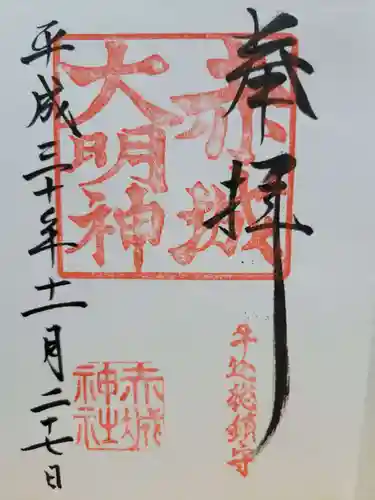 奉拝
赤城
大明神
牛込総鎮守
赤城
神社
平成三十年十一月二十七日